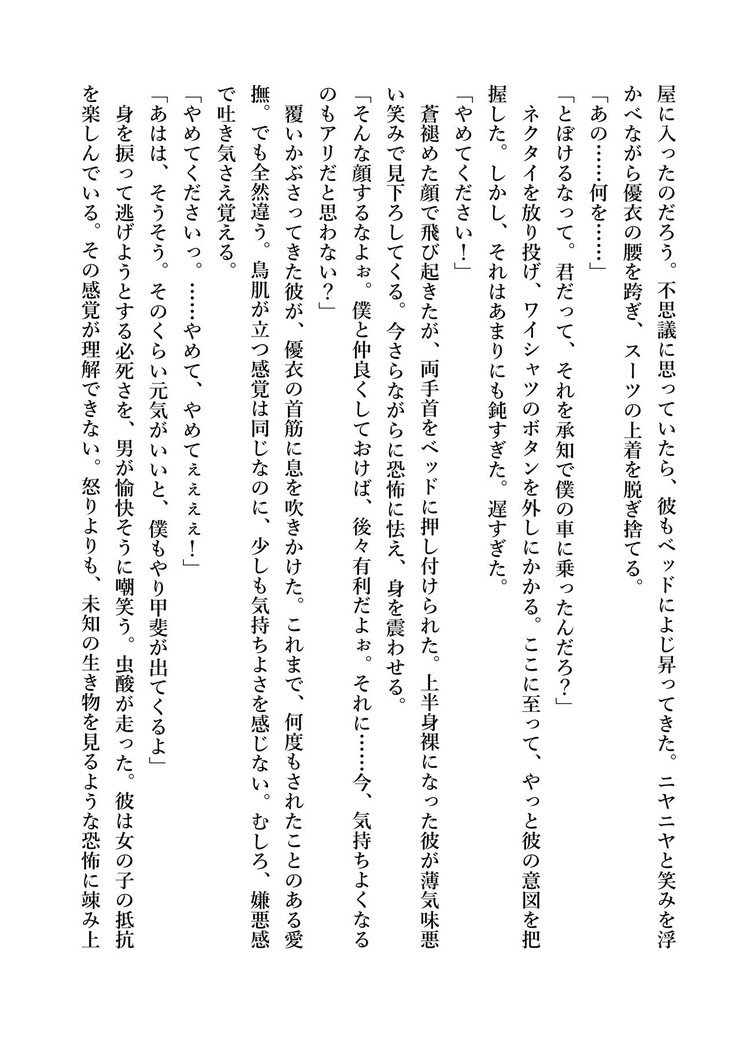 屋に入ったのだろう。不思議に思っていたら、彼もベッドによじ昇ってきた。ニヤニヤと笑みを浮
かべながら優衣の腰を跨ぎ、スーツの上着を脱ぎ捨てる。
「あの……何を……」
「とぼけるなって。君だって、それを承知で僕の車に乗ったんだろ？」
　ネクタイを放り投げ、ワイシャツのボタンを外しにかかる。ここに至って、やっと彼の意図を把
握した。しかし、それはあまりにも鈍すぎた。遅すぎた。
「やめてください！」
　蒼褪めた顔で飛び起きたが、両手首をベッドに押し付けられた。上半身裸になった彼が薄気味悪
い笑みで見下ろしてくる。今さらながらに恐怖に怯え、身を震わせる。
「そんな顔するなよぉ。僕と仲良くしておけば、後々有利だよぉ。それに……今、気持ちよくなる
のもアリだと思わない？」
　覆いかぶさってきた彼が、優衣の首筋に息を吹きかけた。これまで、何度もされたことのある愛
撫。でも全然違う。鳥肌が立つ感覚は同じなのに、少しも気持ちよさを感じない。むしろ、嫌悪感
で吐き気さえ覚える。
「やめてくださいっ。……やめて、やめてぇぇぇぇ！」
「あはは、そうそう。そのくらい元気がいいと、僕もやり甲斐が出てくるよ」
　身を捩って逃げようとする必死さを、男が愉快そうに嘲笑う。虫酸が走った。彼は女の子の抵抗
を楽しんでいる。その感覚が理解できない。怒りよりも、未知の生き物を見るような恐怖に竦み上